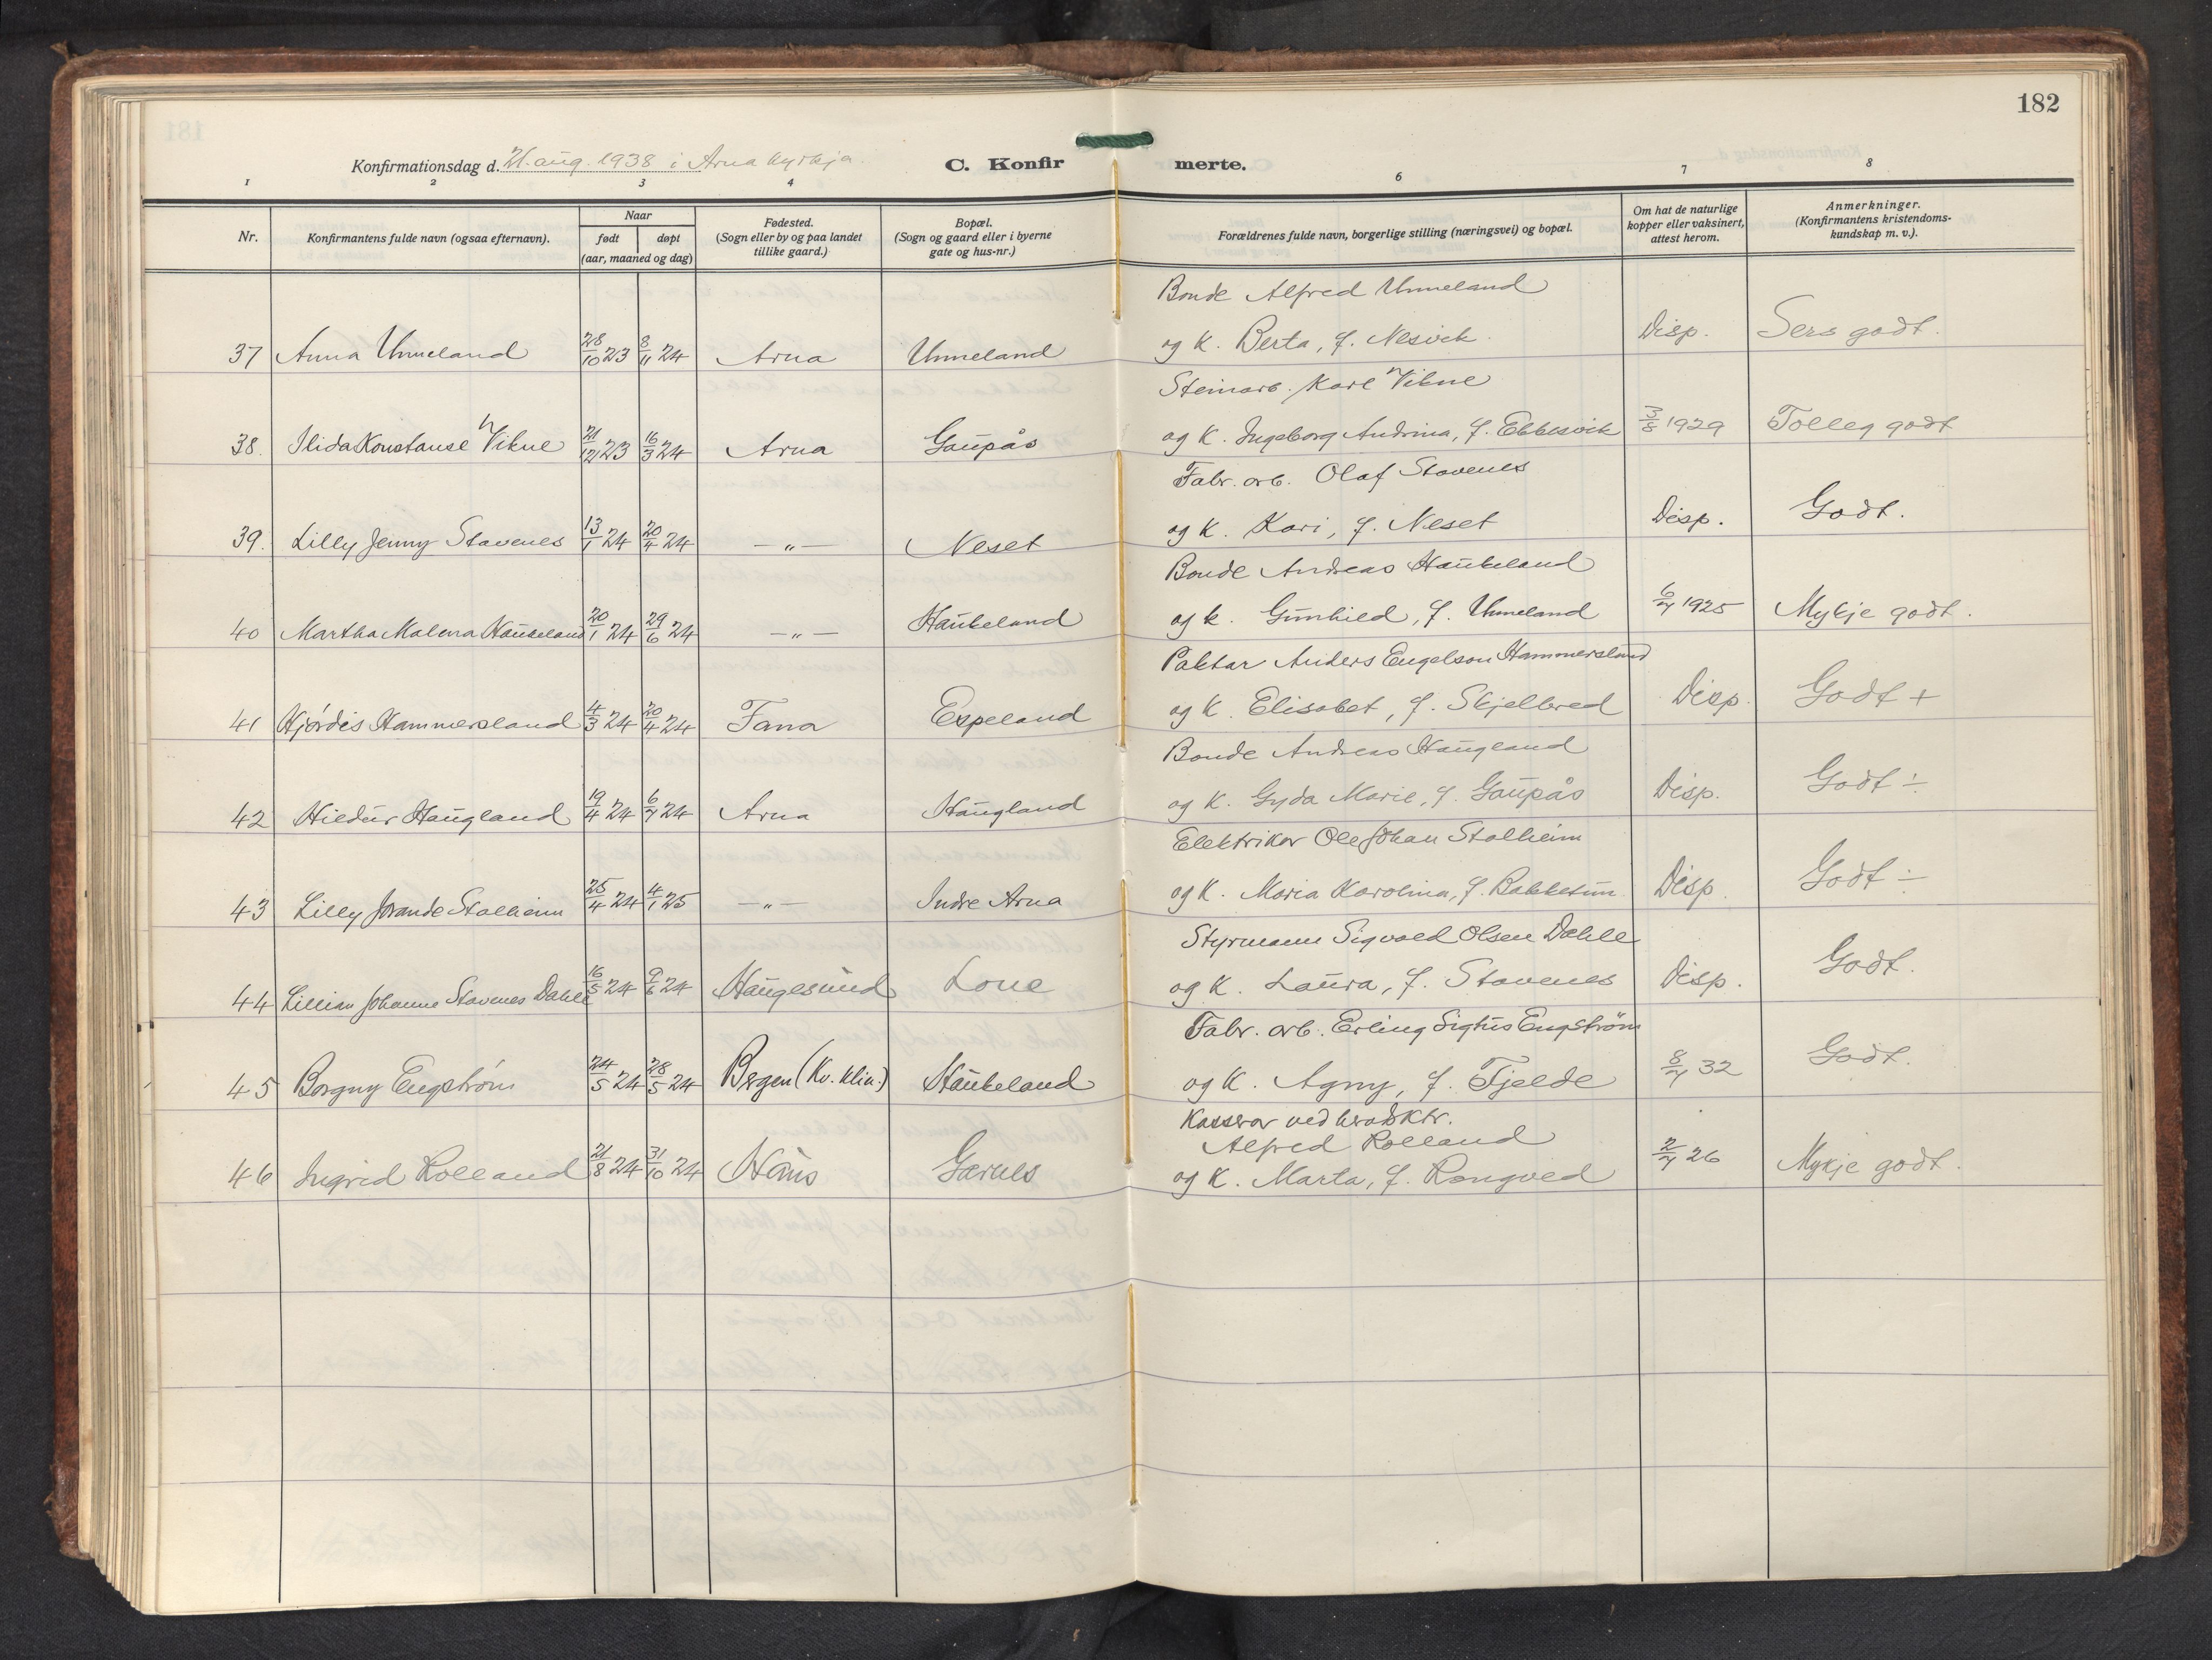 182
Konfirmationsdag d. 21. aug. 1938 i Arna kyrkja.
C. Konfirmerte.
1 2 3 4 6 7 8
Nr.
Konfirmantens fulde navn (ogsaa efternavn).
Naar
født døpt
(aar, maaned og dag)
Fødested.
(Sogn eller by og paa landet
tillike gaard.)
Bopæl.
(Sogn og gaard eller i byerne
gate og hus-nr.)
Forældrenes fulde navn, borgerlige stilling (næringsvei) og bopæl.
Om hat de naturlige
kopper eller vaksinert,
attest herom.
Anmerkninger.
(Konfirmantens kristendoms-
kundskap m. v.).
Bonde Alfred Unneland
37 Anna Unneland 28/10 23 8/11 24 Arna Unneland og k. Berta, f. Nesvik. Disp. Sers godt.
Steinarb. Karl Vikne
38. Ilida Konstanse Vikne 21/12 23 16/3 24 Arna Gaupås og k. Ingeborg Andrina, f. Ebbesvik 3/8 1929 Tolleg godt
Fabr. arb. Olaf Stavenes
39. Lilly Jenny Stavenes 13/1 24 20/4 24 —„— Neset og k. Kari, f. Neset Disp. Godt.
Bonde Andreas Haukeland
40 Martha Malena Haukeland 20/1 24 29/6 24 —„— Haukeland og k. Gunhild, f. Unneland 6/7 1925 Mykje godt.
Paktar Anders Engelson Hammersland
41 Hjørdis Hammersland 4/3 24 20/4 24 Fana Espeland og k. Elisabet, f. Skjelbred Disp. Godt +
Bonde Andreas Haugland
42 Hildur Haugland 19/4 24 6/7 24 Arna Haugland og k. Gyda Marie, f. Gaupås Disp. Godt ÷
Elektriker Ole Johan Stalheim
43 Lilly Jorande Stalheim 25/4 24 4/1 25 —„— Indre Arna og k. Maria Karolina, f. Bakketun Disp. Godt ÷
Styrmann Sigvald Olsen Dahle
44 Lillian Johanne Stavenes Dahle 16/5 24 9/6 24 Haugesund Lone og k. Laura, f. Stavenes Disp. Godt.
Fabr. arb. Erling Sigfus Engstrøm
45 Borgny Engstrøm 24/5 24 28/5 24 Bergen (Kv. klin.) Haukeland og k. Agny, f. Fjelde 8/7 32 Godt.
Kasserar ved heradsktr.
Alfred Rolland
46 Ingrid Rolland 21/8 24 31/10 24 Haus Garnes og k. Marta, f. Rongved 2/7 26 Mykje godt.